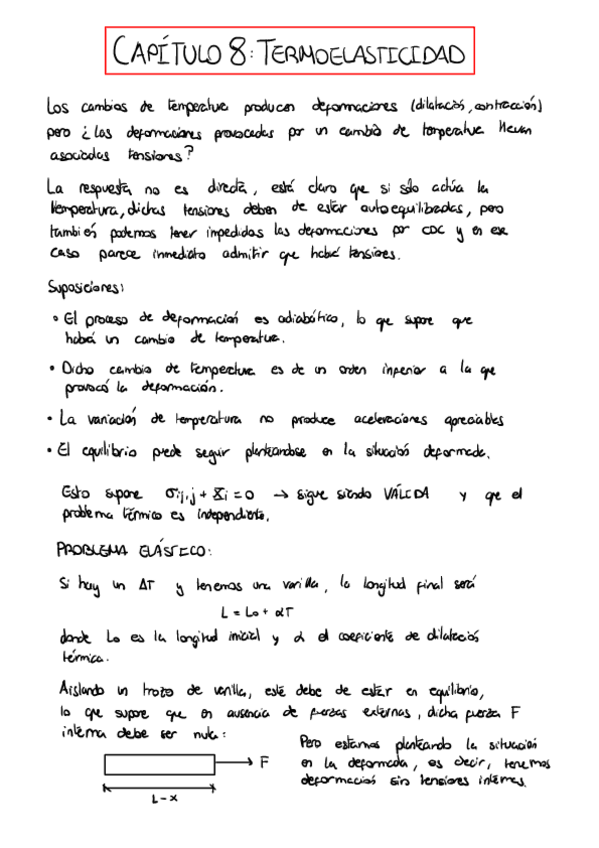 CAPÍTULO 8: TERMOELASTICIDAD
Los cambios de temperatura producen deformaciones (dilatación, contracción)
pero ¿las deformaciones provocadas por un cambio de temperatura llevan
asociadas tensiones?
La respuesta no es directa, está claro que si sólo actúa la
temperatura, dichas tensiones deben de estar autoequilibradas, pero
también podemos tener impedidas las deformaciones por CDC y en ese
caso parece inmediato admitir que habrá tensiones.
Suposiciones:
• El proceso de deformación es adiabático, lo que supone que
habrá un cambio de temperatura.
• Dicho cambio de temperatura es de un orden inferior a la que
provocó la deformación.
• La variación de temperatura no produce aceleraciones apreciables
• El equilibrio puede seguir planteandose en la situación deformada.
Esto supone σij,j + Xi = 0 → sigue siendo VÁLIDA y que el
problema térmico es independiente.
PROBLEMA ELÁSTICO:
Si hay un ΔT y tenemos una varilla, la longitud final será
L = Lo + αT
donde Lo es la longitud inicial y α el coeficiente de dilatación
térmica.
Aislando un trozo de varilla, esté debe de estar en equilibrio,
lo que supone que en ausencia de fuerzas externas, dicha fuerza F
interna debe ser nula:
F
L-x
Pero estamos planteando la situación
en la deformada, es decir, tenemos
deformación sin tensiones internas.